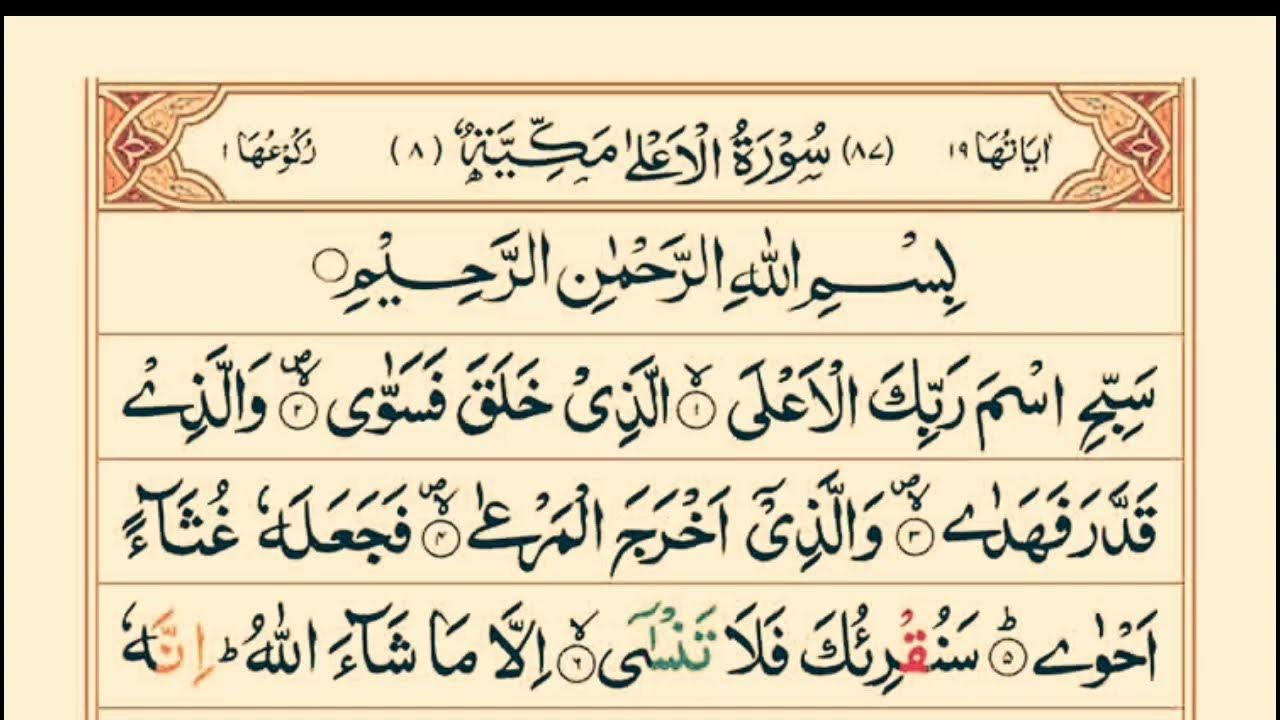 اٰيَاتُهَا ١٩ (٨٧) سُوْرَةُ الْاَعْلٰى مَكِّيَّةٌ (٨) رُكُوْعُهَا ١
بِسْمِ اللّٰهِ الرَّحْمٰنِ الرَّحِيْمِ ۝
سَبِّحِ اسْمَ رَبِّكَ الْاَعْلَى ۙ‏﴿١﴾ الَّذِىْ خَلَقَ فَسَوّٰى ۪ۙ‏﴿٢﴾ وَالَّذِىْ
قَدَّرَ فَهَدٰى ۪ۙ‏﴿٣﴾ وَالَّذِىْۤ اَخْرَجَ الْمَرْعٰى ۪ۙ‏﴿۴﴾ فَجَعَلَهٗ غُثَآءً
اَحْوٰى ؕ‏﴿۵﴾ سَنُقْرِئُكَ فَلَا تَنْسٰٓى ۙ‏﴿٦﴾ اِلَّا مَا شَآءَ اللّٰهُ‌ؕ اِنَّهٗ